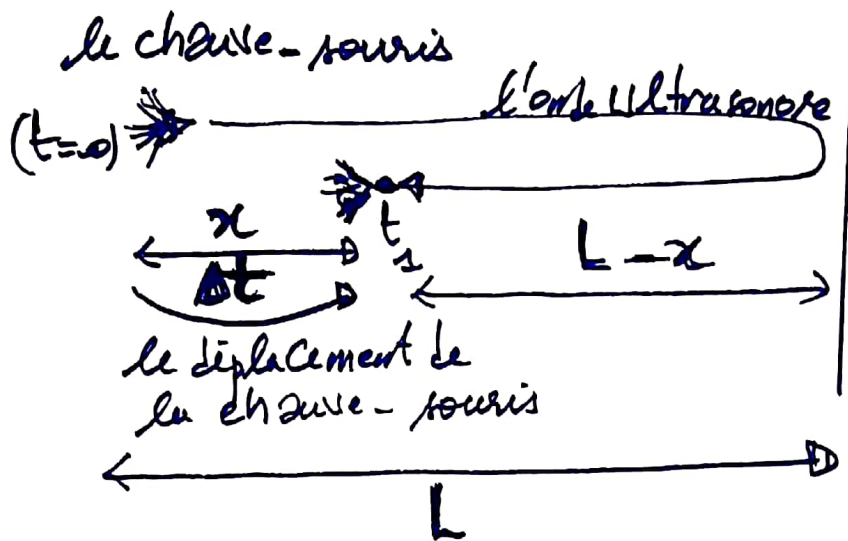 le chauve-souris
l'onde Ultrasonore
(t=0)
t₁
x
L-x
Δt
le déplacement de
la chauve-souris
L